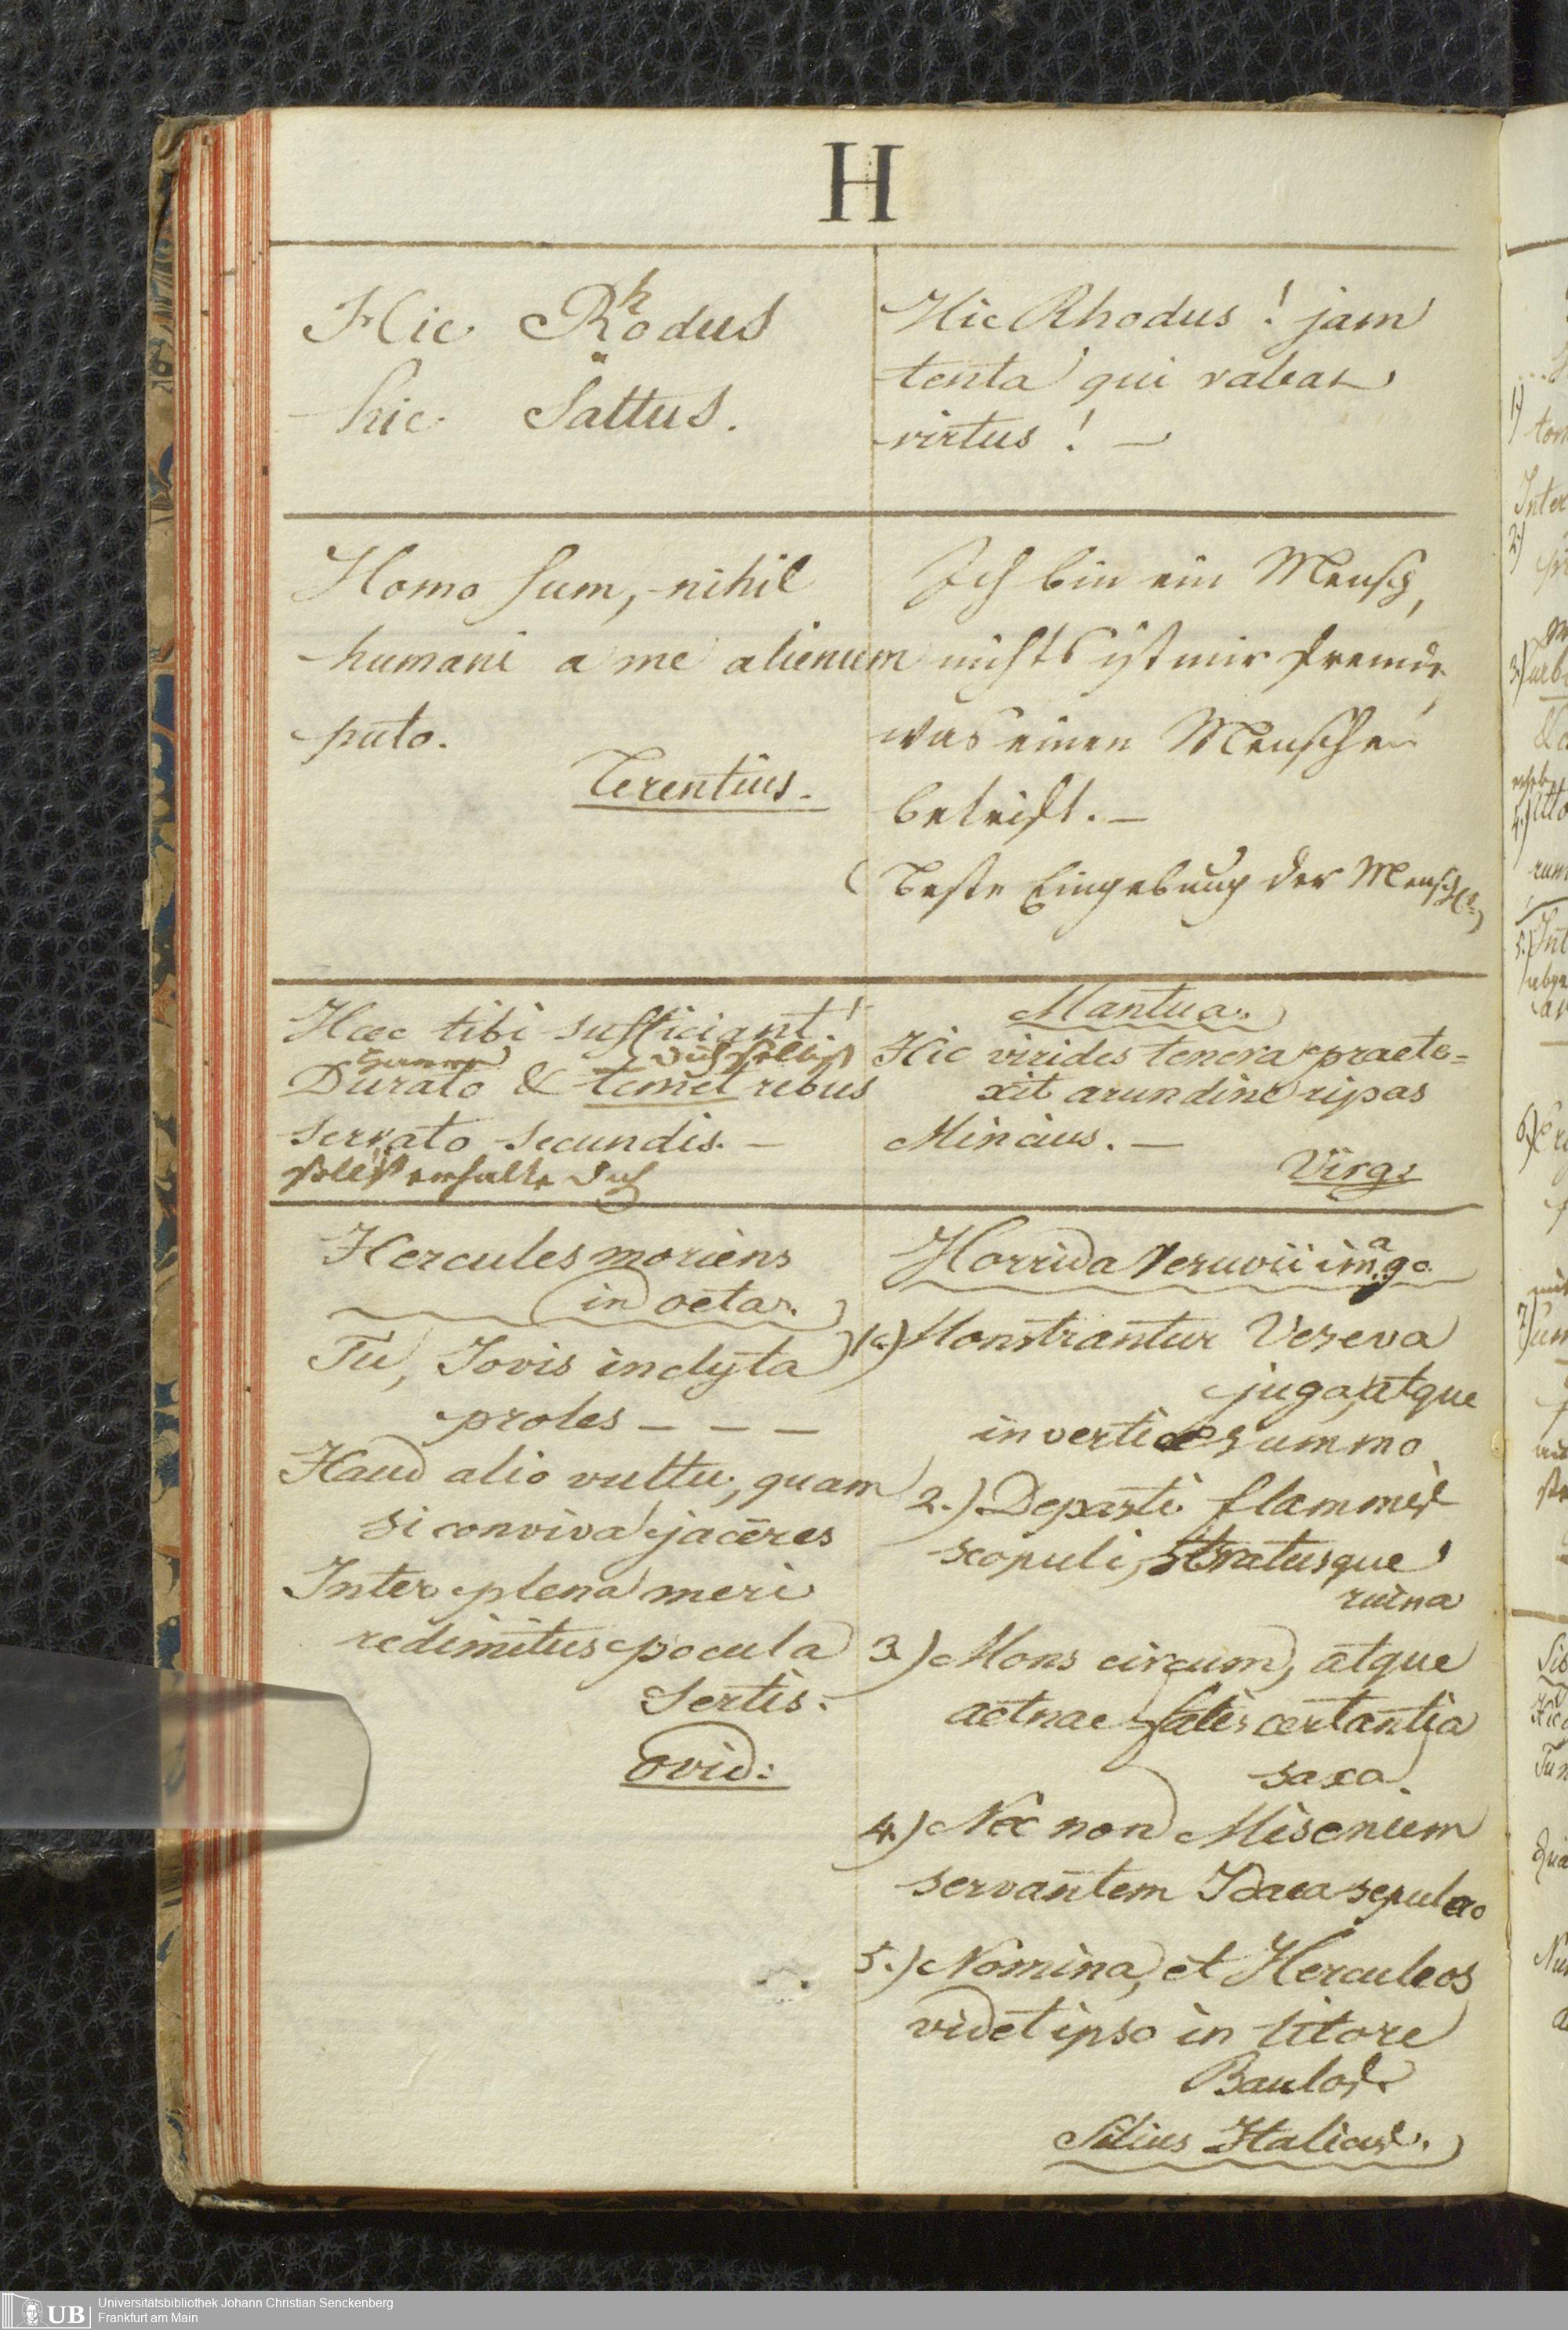 H
Hic Rhodus
hic Saltus.
Hic Rhodus! jam
tenta qui valeas
virtus! —
Homo sum, nihil
humani a me alienum
puto.
Terentius.
Ich bin ein Mensch,
nichts ist mir fremd,
was einen Menschen
betrift. —
(Beste Eingebung der Mensch
Haec tibi sufficiant!
dich selbist
Durato & temet rebus
servato secundis. —
selbst erhalte dich
Mantua.
Hic virides tenera praete=
xit arundine ripas
Mincius. —
Virg:
Hercules moriens
in oeta.
Tu, Jovis indyta
proles _ _ _
Haud alio vultu, quam
si conviva jaceres
Inter plena meri
redimitus pocula
Sertis.
Ovid:
Horrida Vesuvii imago
1.) Monstrantur Veseva
juga, atque
in vertice summo
2.) Depasti flammis
scopuli, stratusque
ruina
3.) Mons circum, atque
aetnae fatis certantia
saxa.
4.) Nec non Misenum
servantem Idaea sepulcro
5.) Nomina, et Herculeos
videt ipso in litore
Baulos.
Silius Italicus.
UB
Universitätsbibliothek Johann Christian Senckenberg
Frankfurt am Main